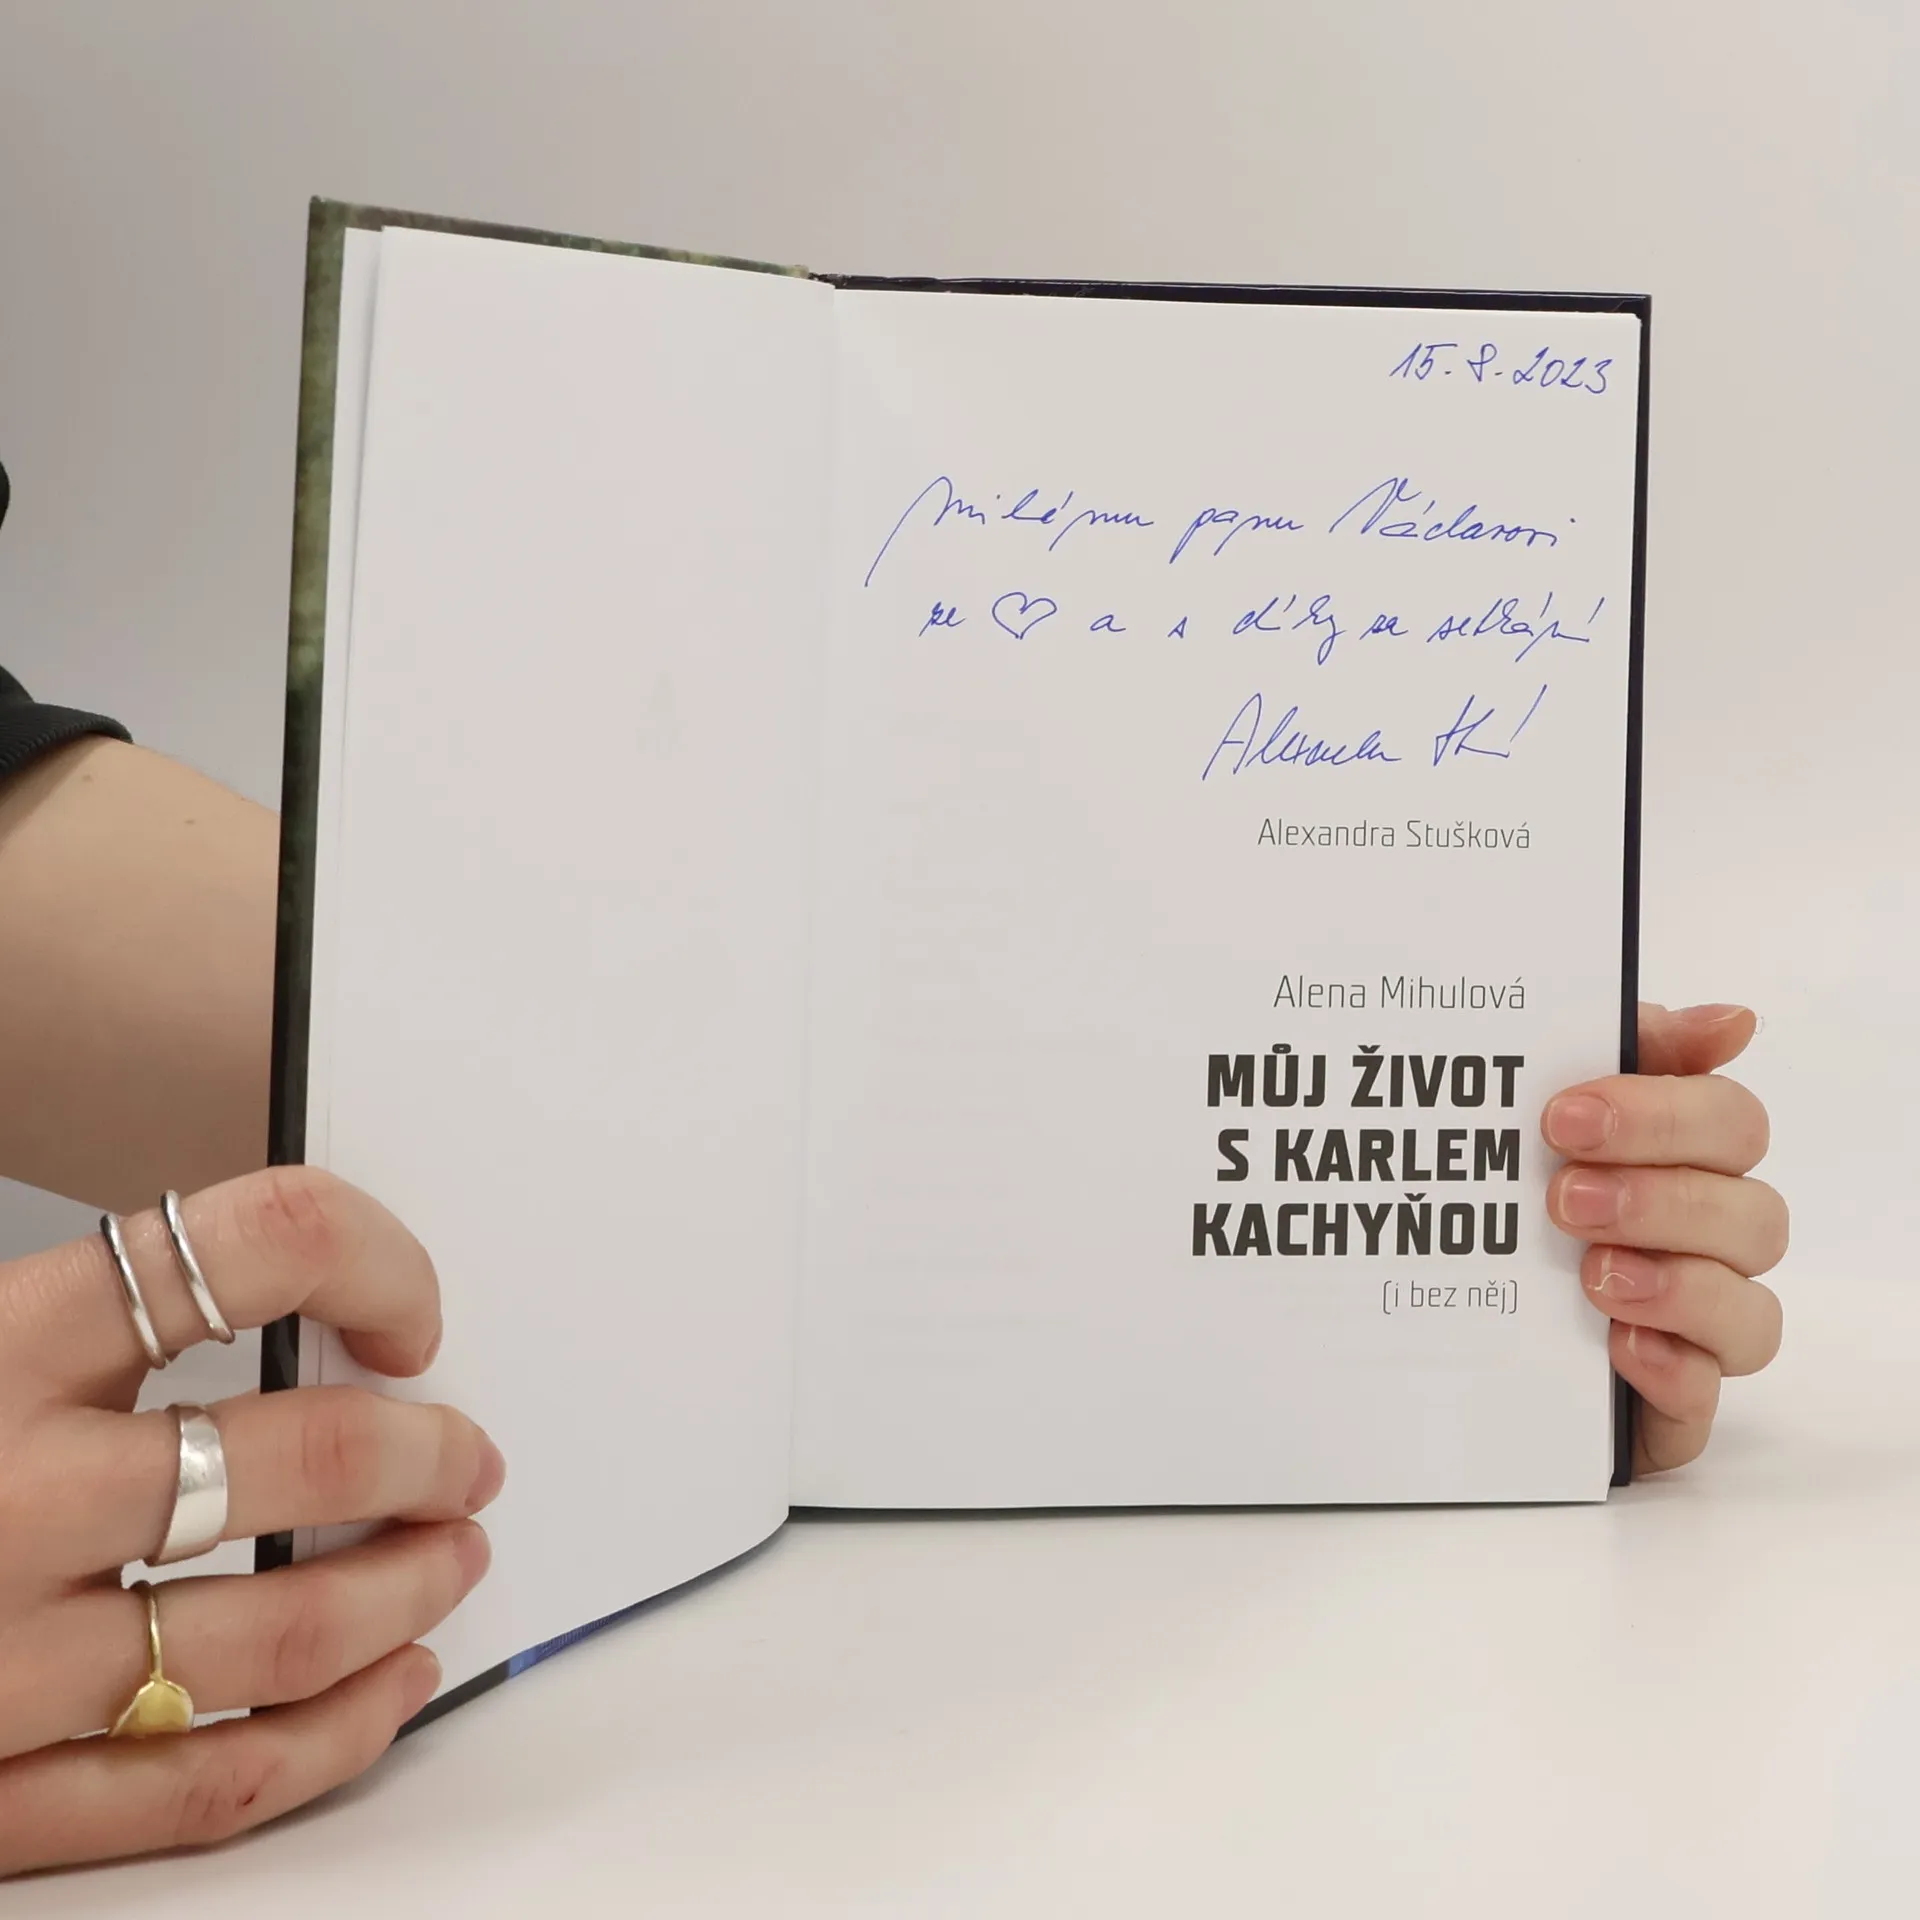 15. 8. 2023
Milému panu Václavovi
ze ♡ a s díky za setkání
Alexandra
Alexandra Stušková
Alena Mihulová
MŮJ ŽIVOT
S KARLEM
KACHYŇOU
(i bez něj)